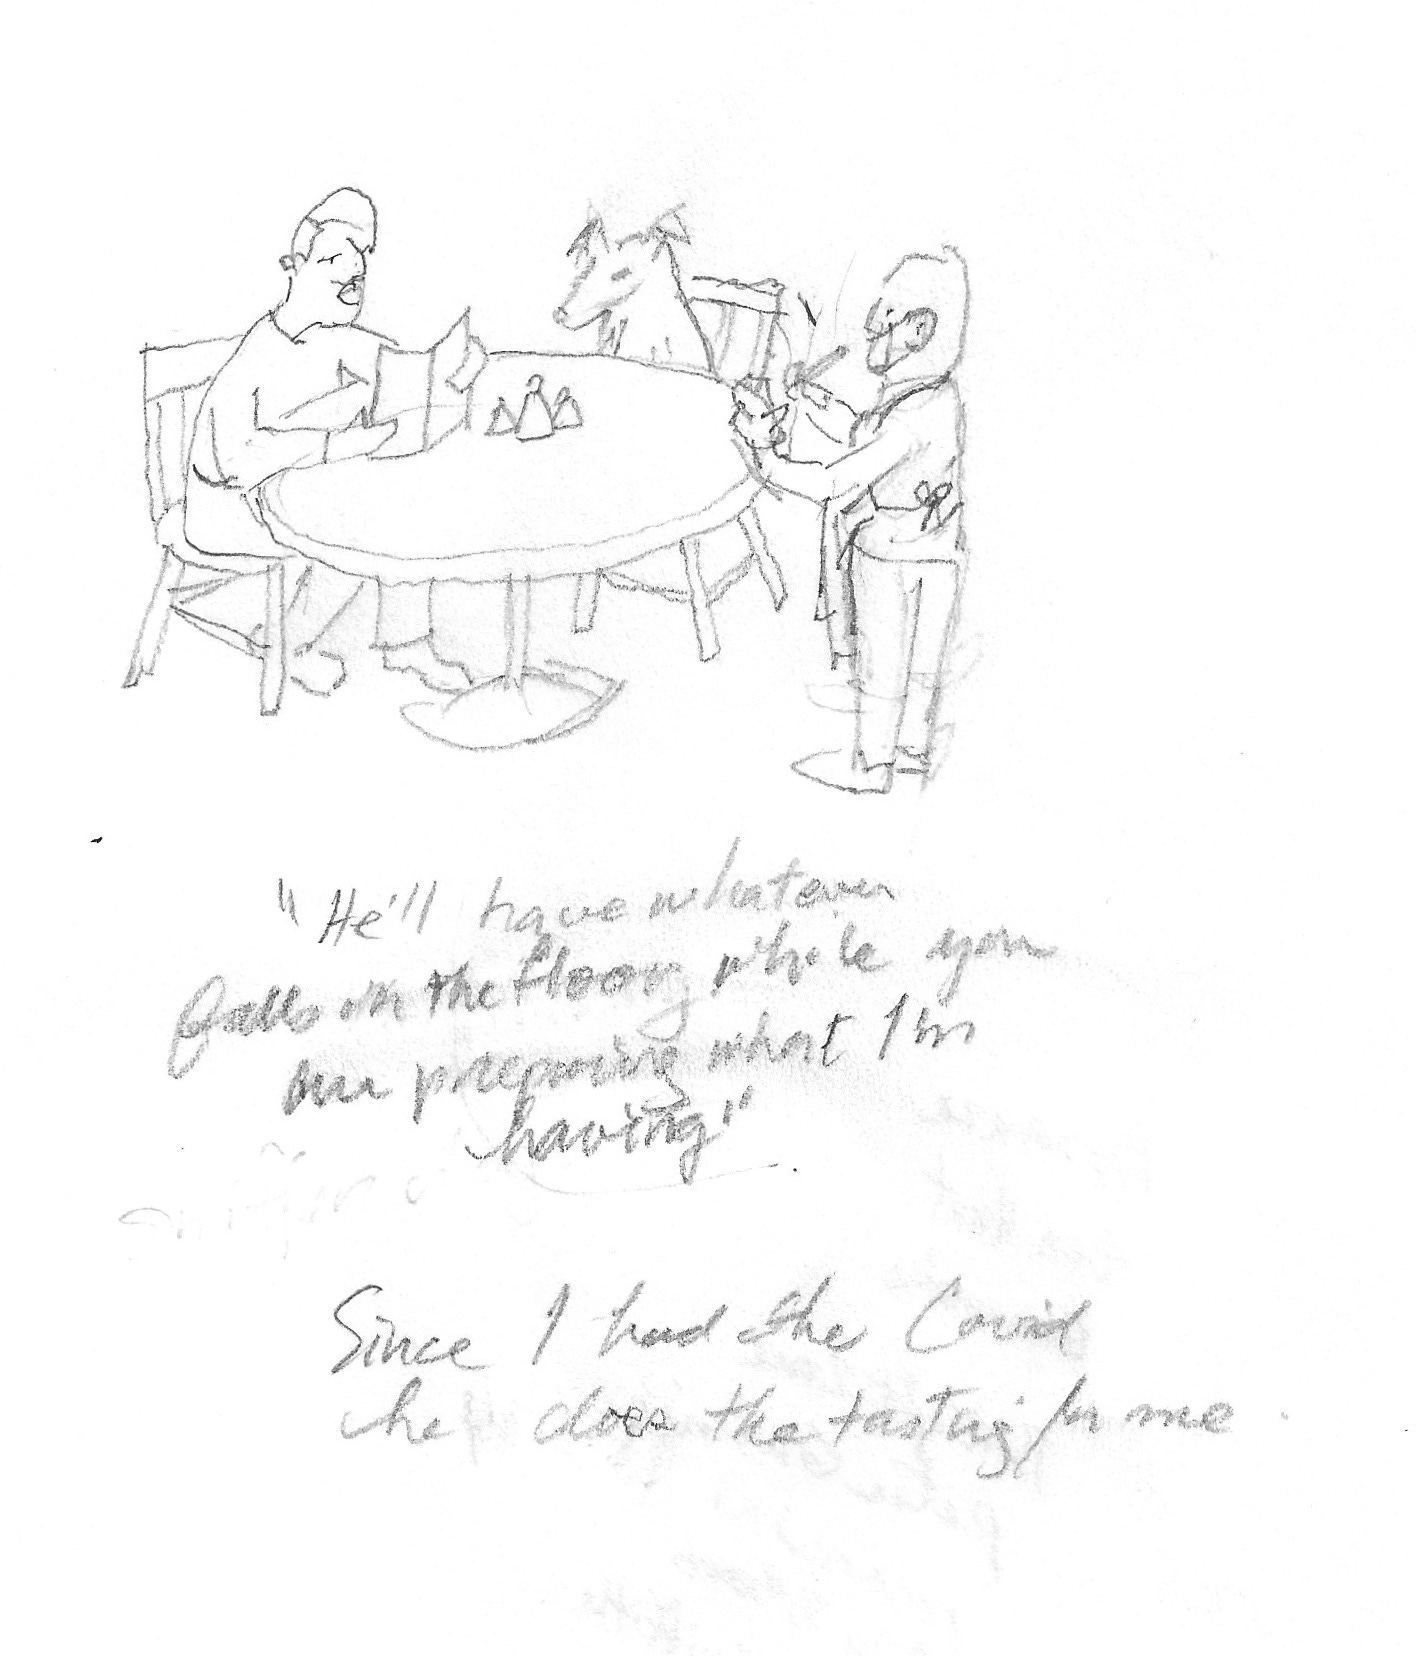 "He'll have whatever
falls on the floor while you
are preparing what I'm
having"
Since I had the Covid
he does the tasting for me